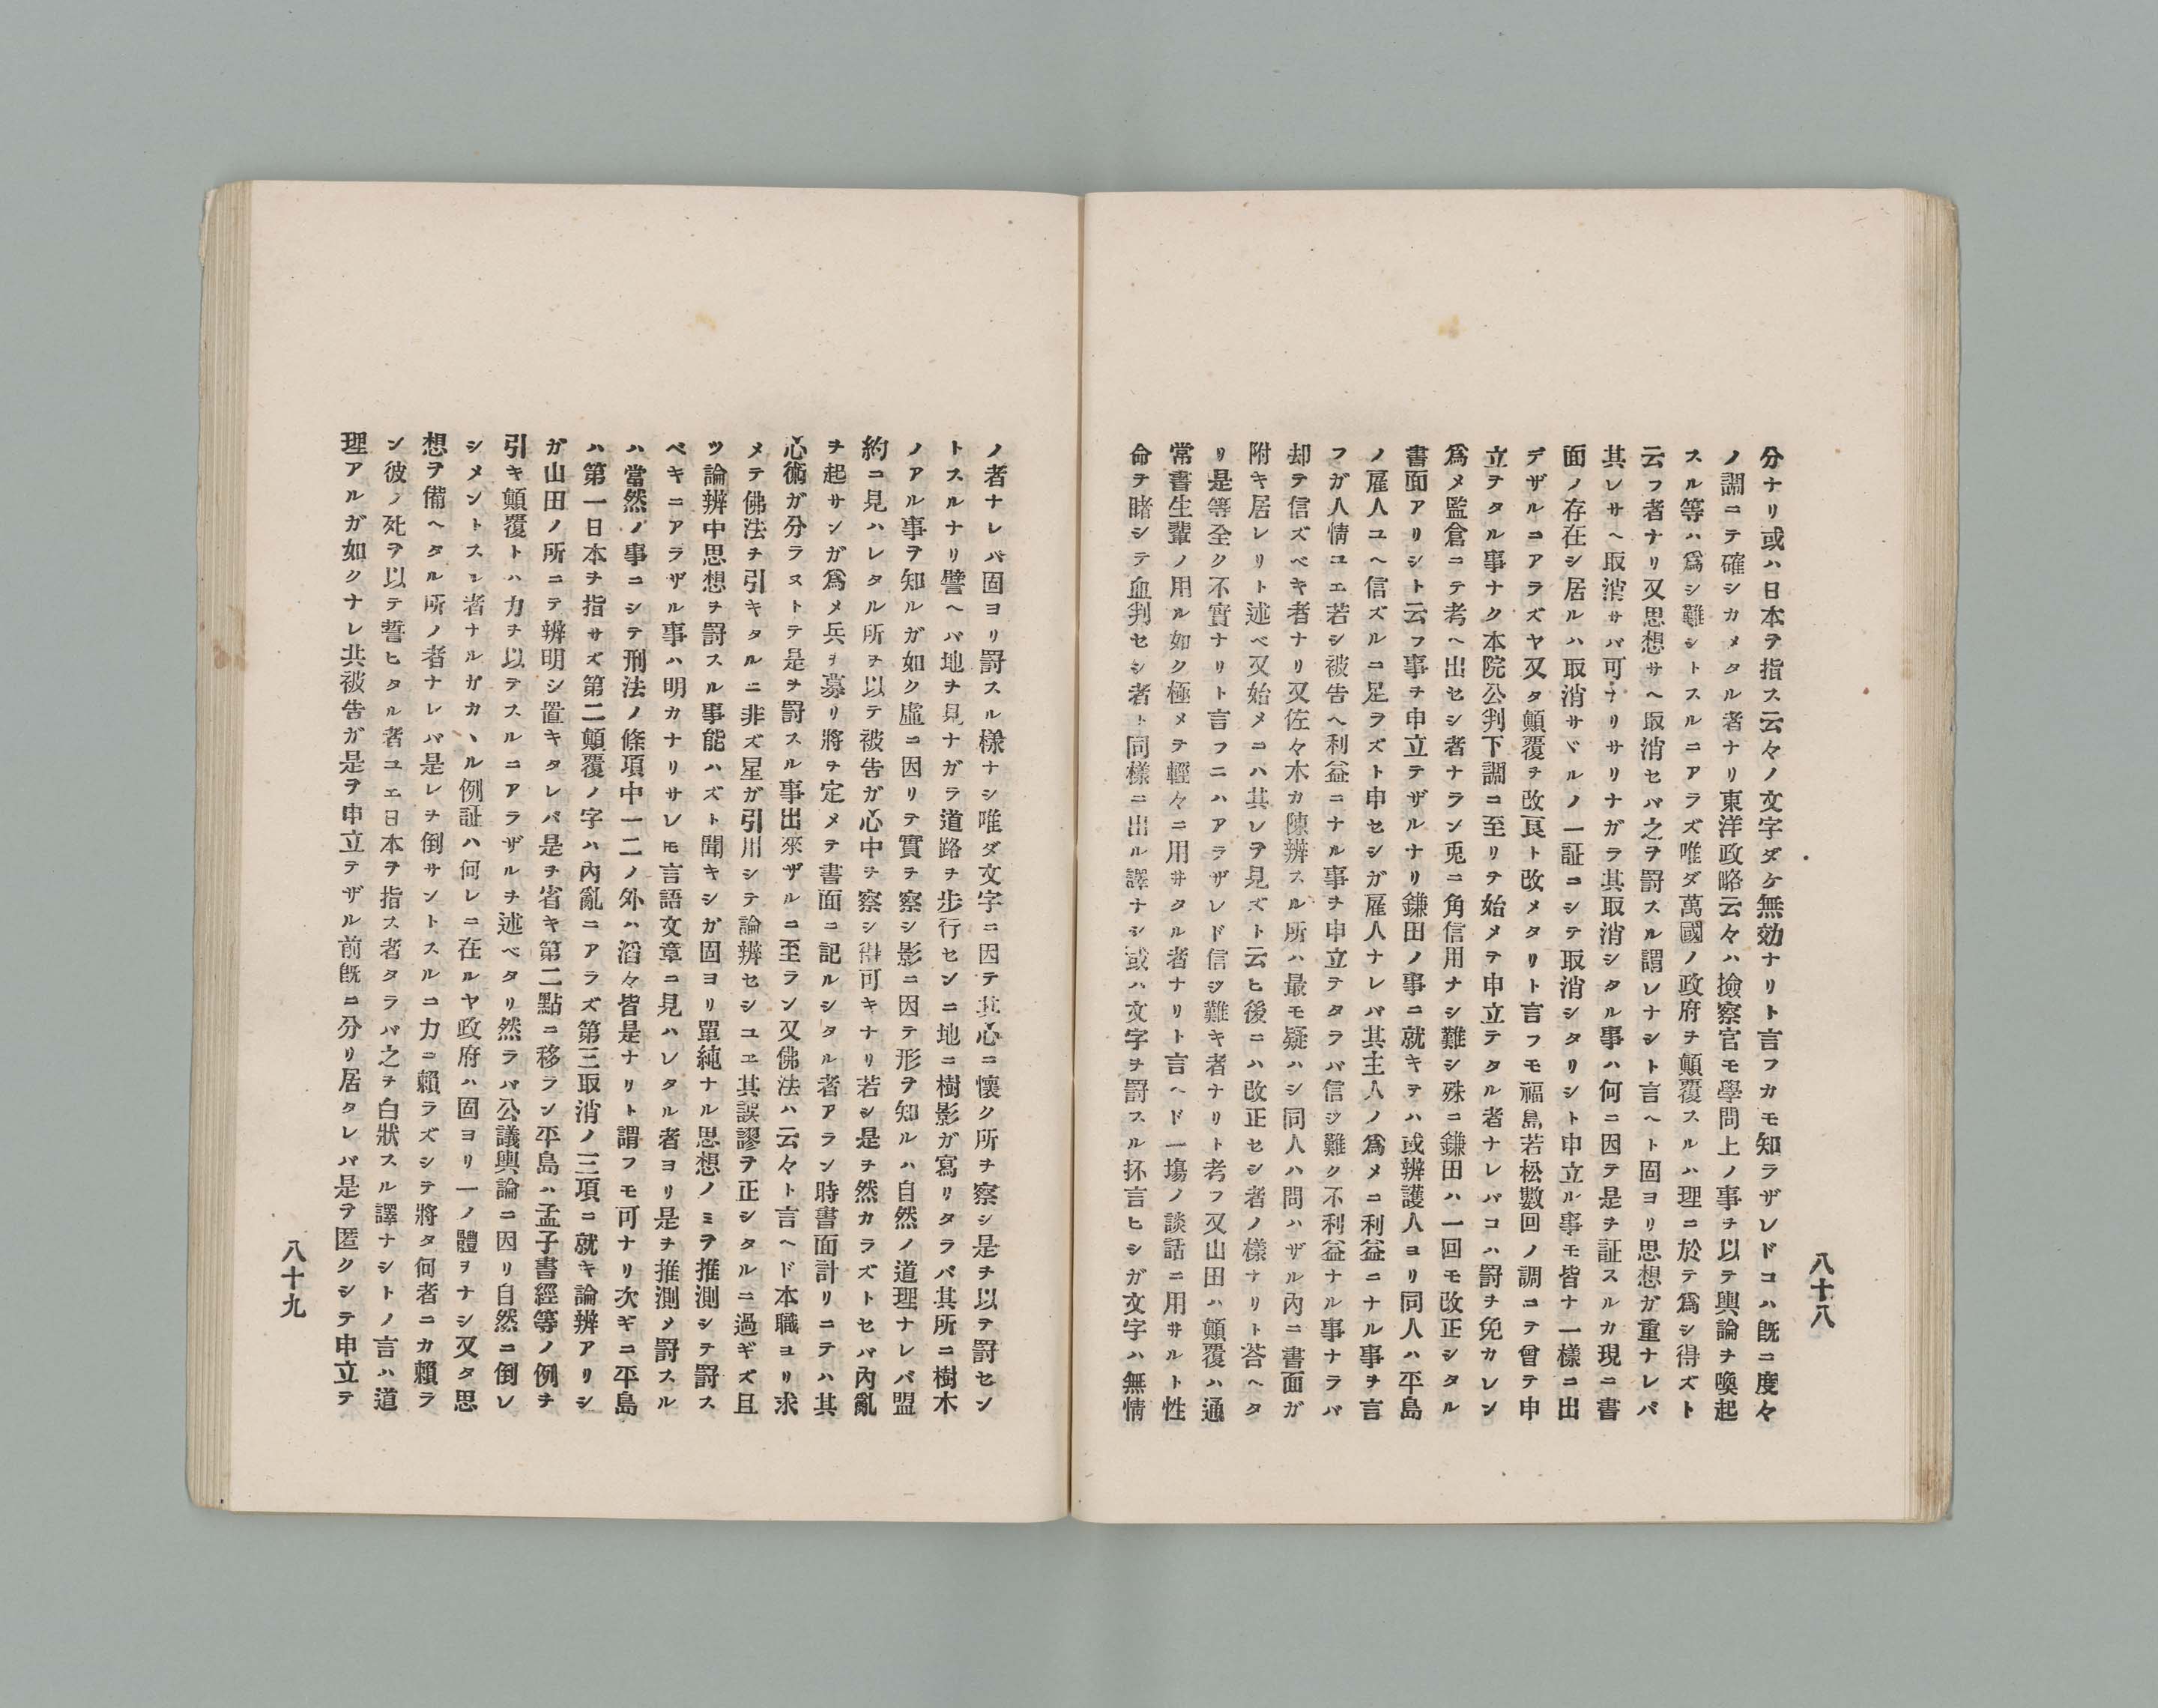 八十八
分ナリ或ハ日本ヲ指ス云々ノ文字ダケ無効ナリト言フカモ知ラザレドコハ既ニ度々
ノ調ニテ確シカメタル者ナリ東洋政略云々ハ撿察官モ學問上ノ事ヲ以テ輿論ヲ喚起
スル等ハ爲シ難シトスルニアラズ唯ダ萬國ノ政府ヲ顛覆スルハ理ニ於テ爲シ得ズト
云フ者ナリ又思想サヘ取消セバ之ヲ罰スル謂レナシト言ヘト固ヨリ思想ガ重ナレバ
其レサヘ取消サバ可ナリサリナガラ其取消シタル事ハ何ニ因テ是ヲ証スルカ現ニ書
面ノ存在シ居ルハ取消サヾルノ一証ニシテ取消シタリシト申立ル事モ皆ナ一樣ニ出
デザルニアラズヤ又タ顛覆ヲ改良ト改メタリト言フモ福島若松數回ノ調ニテ曾テ申
立ヲタル事ナク本院公判下調ニ至リヲ始メテ申立テタル者ナレバコハ罰ヲ免カレン
爲メ監倉ニテ考ヘ出セシ者ナラン兎ニ角信用ナシ難シ殊ニ鎌田ハ一回モ改正シタル
書面アリシト云フ事ヲ申立テザルナリ鎌田ノ事ニ就キテハ或辨護人ヨリ同人ハ平島
ノ雇人ユヘ信ズルニ足ラズト申セシガ雇人ナレバ其主人ノ爲メニ利益ニナル事ヲ言
フガ人情ユエ若シ被告ヘ利益ニナル事ヲ申立テタラバ信ジ難ク不利益ナル事ナラバ
却テ信ズベキ者ナリ又佐々木カ陳辨スル所ハ最モ疑ハシ同人ハ問ハザル內ニ書面ガ
附キ居レリト述ベ又始メニハ其レヲ見ズト云ヒ後ニハ改正セシ者ノ樣ナリト荅ヘタ
リ是等全ク不實ナリト言フニハアラザレド信ジ難キ者ナリト考フ又山田ハ顛覆ハ通
常書生輩ノ用ル如ク極メテ輕々ニ用サタル者ナリト言ヘド一塲ノ談話ニ用サルト性
命ヲ賭シテ血判セシ者ト同樣ニ出ル譯ナシ或ハ文字ヲ罰スル抔言ヒシガ文字ハ無情
ノ者ナレバ固ヨリ罰スル樣ナシ唯ダ文字ニ因テ其心ニ懷ク所ヲ察シ是ヲ以テ罰セン
トスルナリ譬ヘバ地ヲ見ナガラ道路ヲ步行センニ地ニ樹影ガ寫リタラバ其所ニ樹木
ノアル事ヲ知ルガ如ク虛ニ因リテ實ヲ察シ影ニ因テ形ヲ知ルハ自然ノ道理ナレバ盟
約ニ見ハレタル所ヲ以テ被告ガ心中ヲ察シ得可キナリ若シ是ヲ然カラズトセバ內亂
ヲ起サンガ爲メ兵ヲ募リ將ヲ定メテ書面ニ記ルシタル者アラン時書面計リニテハ其
心術ガ分ラヌトテ是ヲ罰スル事出來ザルニ至ラン又佛法ハ云々ト言ヘド本職ヨリ求
メテ佛法ヲ引キタルニ非ズ星ガ引川シテ論辨セシユヱ其誤謬ヲ正シタルニ過ギズ且
ツ論辨中思想ヲ罰スル事能ハズト聞キシガ固ヨリ單純ナル思想ノミヲ推測シテ罰ス
ベキニアラザル事ハ明カナリサレモ言語文章ニ見ハレタル者ヨリ是ヲ推測ノ罰スル
ハ當然ノ事ニシテ刑法ノ條項中一二ノ外ハ滔々皆是ナリト謂フモ可ナリ次ギニ平島
ハ第一日本ヲ指サズ第二顛覆ノ字ハ內亂ニアラズ第三取消ノ三項ニ就キ論辨アリシ
ガ山田ノ所ニテ辨明シ置キタレバ是ヲ省キ第二點ニ移ラン平島ハ孟子書經等ノ例ヲ
引キ顛覆トハ力ヲ以テスルニアラザルヲ述ベタリ然ラバ公議輿論ニ因リ自然ニ倒レ
シメントスレ者ナルガカヽル例証ハ何レニ在ルヤ政府ハ固ヨリ一ノ體ヲナシ又タ思
想ヲ備ヘタル所ノ者ナレバ是レヲ倒サントスルニ力ニ賴ラズシテ將タ何者ニカ賴ラ
ン彼ノ死ヲ以テ誓ヒタル者ユエ日本ヲ指ス者タラバ之ヲ白狀スル譯ナシトノ言ハ道
理アルガ如クナレ共被告ガ是ヲ申立テザル前既ニ分リ居タレバ是ヲ匿クシテ申立テ
八十九